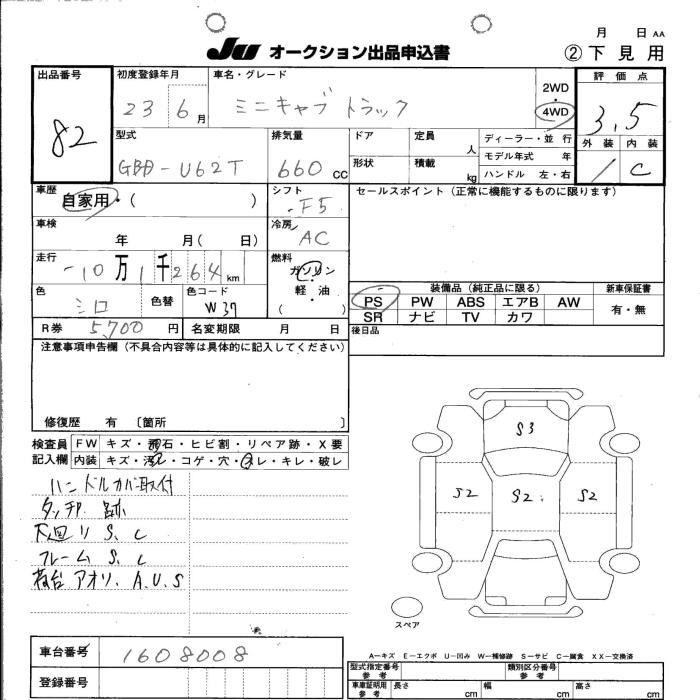 月 日 AA
JU オークション出品申込書 ② 下見用
出品番号 初度登録年月 車名・グレード 評価点
82 23 6月 ミニキャブ トラック 2WD・4WD 3.5
型式 排気量 ドア 定員 人 ディーラー・並行 外装 内装
GBD-U62T 660 cc 形状 積載 kg モデル年式 年 / C
ハンドル 左・右
車歴 シフト セールスポイント(正常に機能するものに限ります)
自家用・( ) F5
車検 冷房
年 月( 日) AC
走行 燃料
10万1千264km ガソリン・軽油 ( )
装備品(純正品に限る) 新車保証書
色 色替 色コード PS PW ABS エアB AW 有・無
シロ W37 SR ナビ TV カワ
R券 5,700円 名変期限 月 日 後日品
注意事項申告欄(不具合内容等は具体的に記入してください)
修復歴 有 〔箇所 〕
検査員 FW キズ・飛石・ヒビ割・リペア跡・X要
記入欄 内装 キズ・汚レ・コゲ・穴・スレ・キレ・破レ
ハンドルカバー取付
タッチ 跡
下回り S. C
フレーム S. C
荷台 アオリ. A.U.S
S3
S2 S2 S2
スペア
A-キズ E-エクボ U-凹み W-補修跡 S-サビ C-腐食 XX-交換済
車台番号 1608008
登録番号
型式指定番号 参考 類別区分番号 参考
車庫証明用 参考 長さ cm 幅 cm 高さ cm